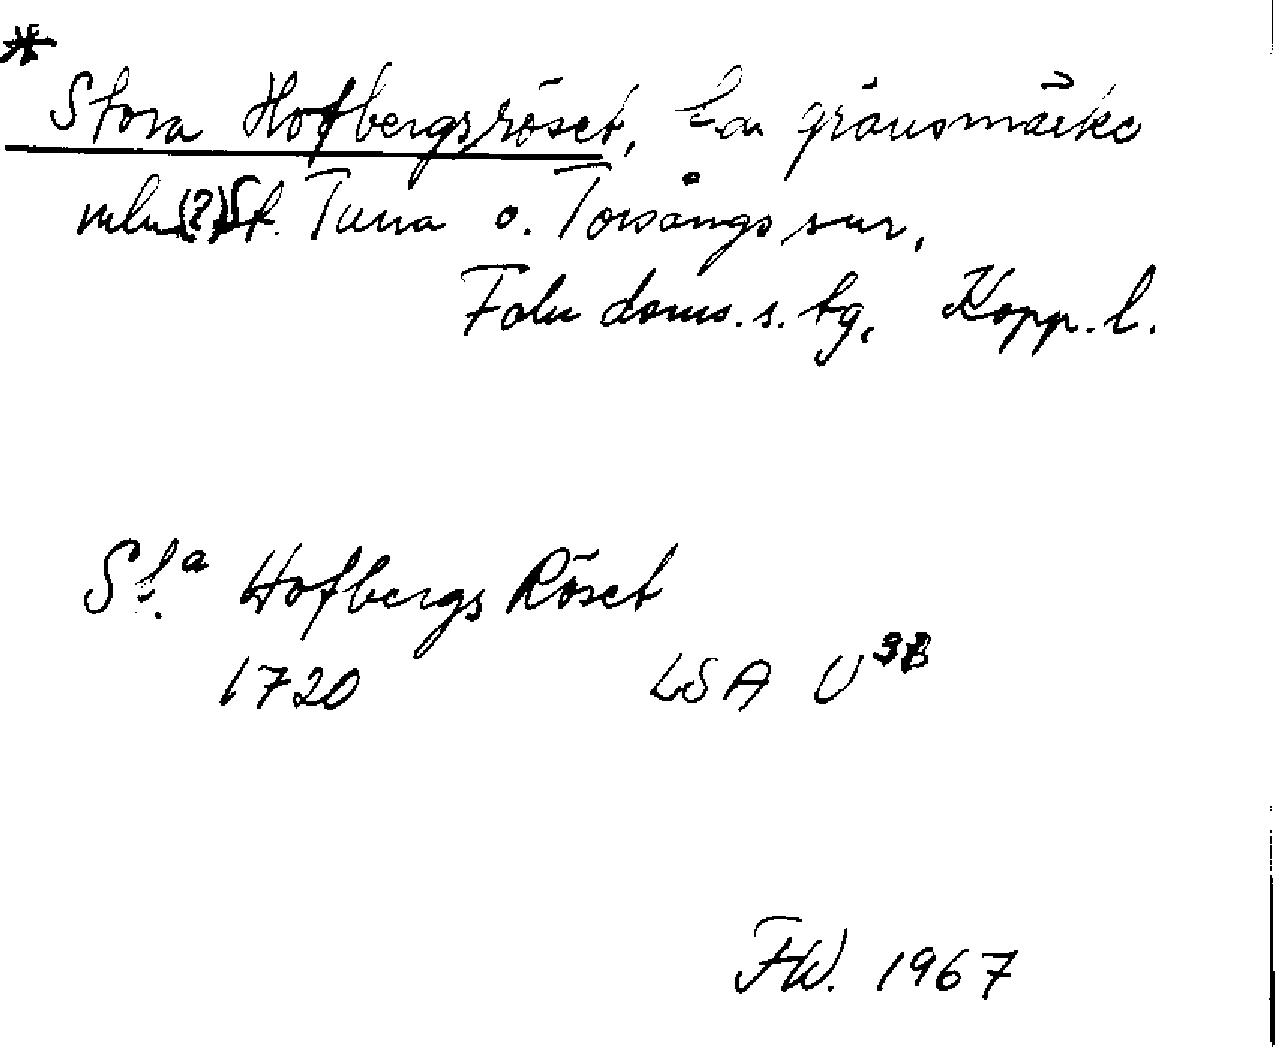 * Stora Hofbergsröset, f.d. gränsmärke
mln (?) St. Tuna o. Torsångs snr,
Falu doms. s. tg, Kopp. l.
St.a Hofbergs Röset
1720 LSA U 3B
F.W. 1967